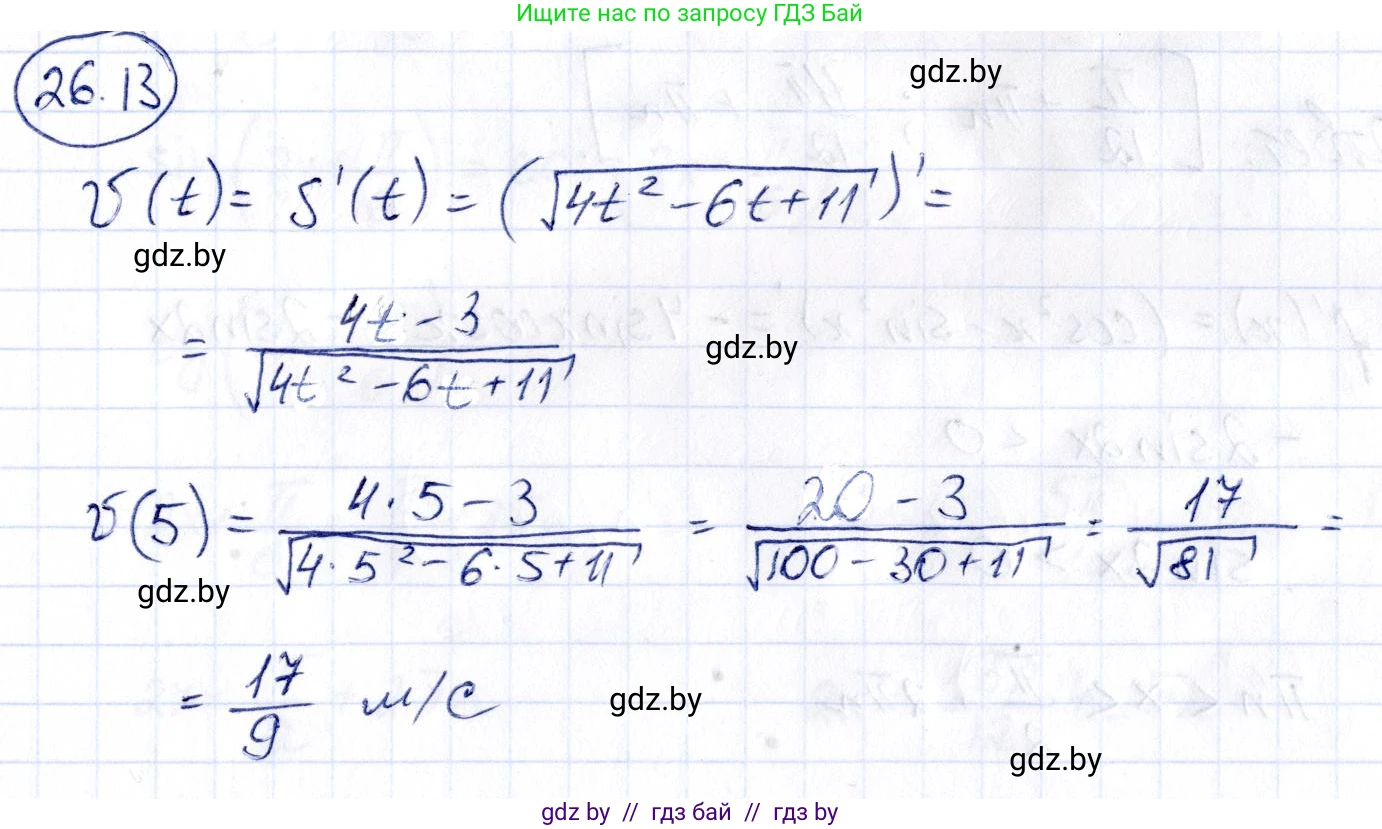 Ищите нас по запросу ГДЗ Бай
26.13
gdz.by
v(t) = s'(t) = (√(4t² - 6t + 11))' =
gdz.by
= (4t - 3)/√(4t² - 6t + 11)
gdz.by
v(5) = (4·5 - 3)/√(4·5² - 6·5 + 11) = (20 - 3)/√(100 - 30 + 11) = 17/√81 =
gdz.by
= 17/9 м/с
gdz.by
gdz.by
gdz by // гдз бай // гдз by